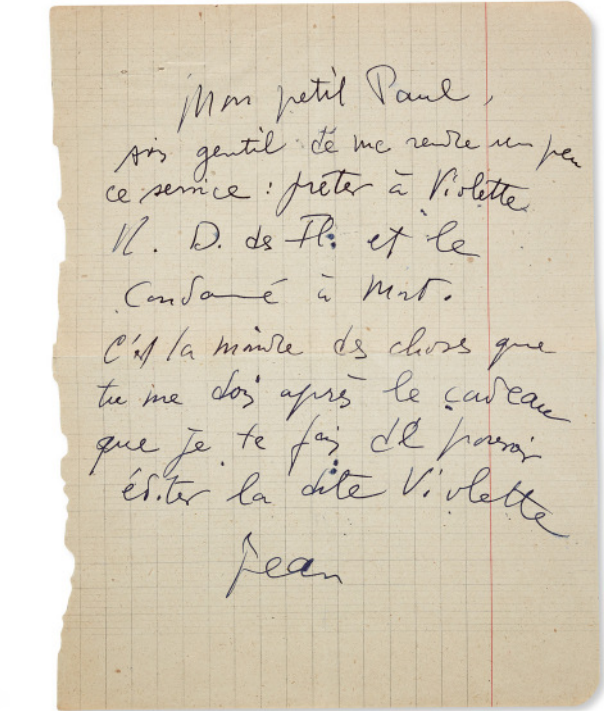 Mon petit Paul,
sois gentil de me rendre un peu
ce service : prêter à Violette
N. D. des Fl. et le
Condamné à Mort.
C'est la moindre des choses que
tu me dois après le cadeau
que je te fais de pouvoir
éditer la dite Violette
Jean